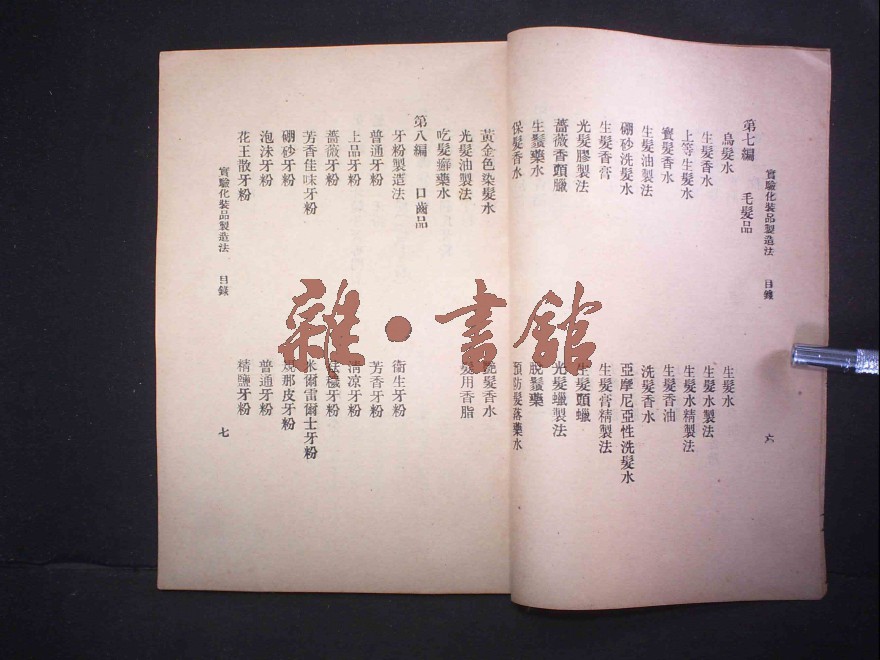 實驗化裝品製造法 目錄 六
第七編 毛髮品
烏髮水 生髮水
生髮香水 生髮水製法
上等生髮水 生髮水精製法
賓髮香水 生髮香油
生髮油製法 洗髮香水
硼砂洗髮水 亞摩尼亞性洗髮水
生髮香膏 生髮膏精製法
光髮膠製法 生髮頭蠟
薔薇香頭臘 光髮蠟製法
生鬚藥水 脫鬚藥
保髮香水 預防髮落藥水
黃金色染髮水 髮香水
光髮油製法 髮用香脂
吃髮癬藥水
第八編 口齒品
牙粉製造法 衞生牙粉
普通牙粉 芳香牙粉
上品牙粉 清凉牙粉
薔薇牙粉 祛穢牙粉
芳香佳味牙粉 米爾雷爾士牙粉
硼砂牙粉 規那皮牙粉
泡沫牙粉 普通牙粉
花王散牙粉 精鹽牙粉
實驗化裝品製造法 目錄 七
雜·書館